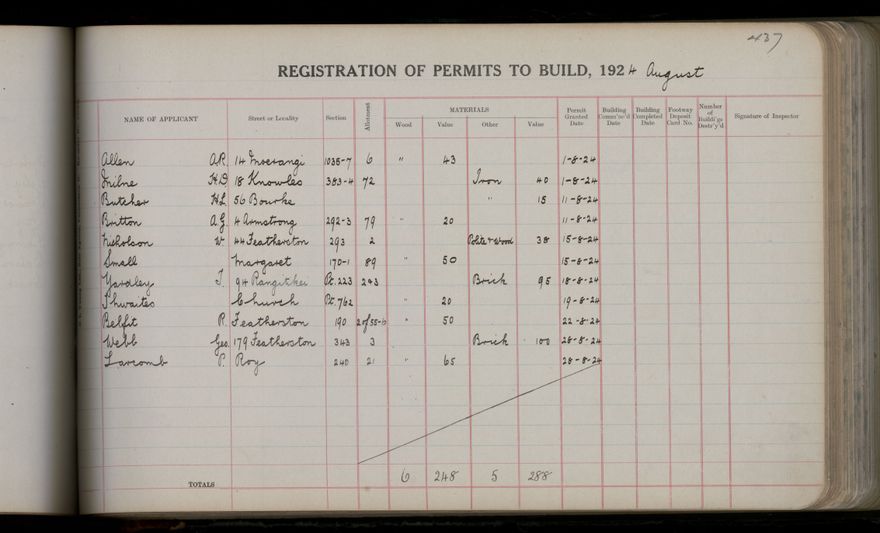 437
REGISTRATION OF PERMITS TO BUILD, 1924 August
NAME OF APPLICANT Street or Locality Section Allotment MATERIALS Wood Value Other Value Permit Granted Date Building Comm'nc'd Date Building Completed Date Footway Deposit Card No. Number of Build'gs Destr'y'd Signature of Inspector
Allen A.R. 14 Moerangi 1035-7 6 " 43 1-8-24
Milne H.D. 18 Knowles 383-4 72 Iron 40 1-8-24
Butcher H.L. 56 Bourke " 15 11-8-24
Britton A.G. 4 Armstrong 292-3 79 " 20 11-8-24
Nicholson W 44 Featherston 293 2 & Wood 38 15-8-24
Small Margaret 170-1 89 " 50 15-8-24
Yardley J. 94 Rangitikei Pt. 223 243 Brick 95 18-8-24
Thwaites Church Pt. 762 " 20 19-8-24
Belfit R. Featherston 190 2 of 55-6 " 50 22-8-24
Webb Geo. 179 Featherston 343 3 Brick 100 28-8-24
Larcomb P. Roy 240 21 " 65 28-8-24
TOTALS 6 248 5 288